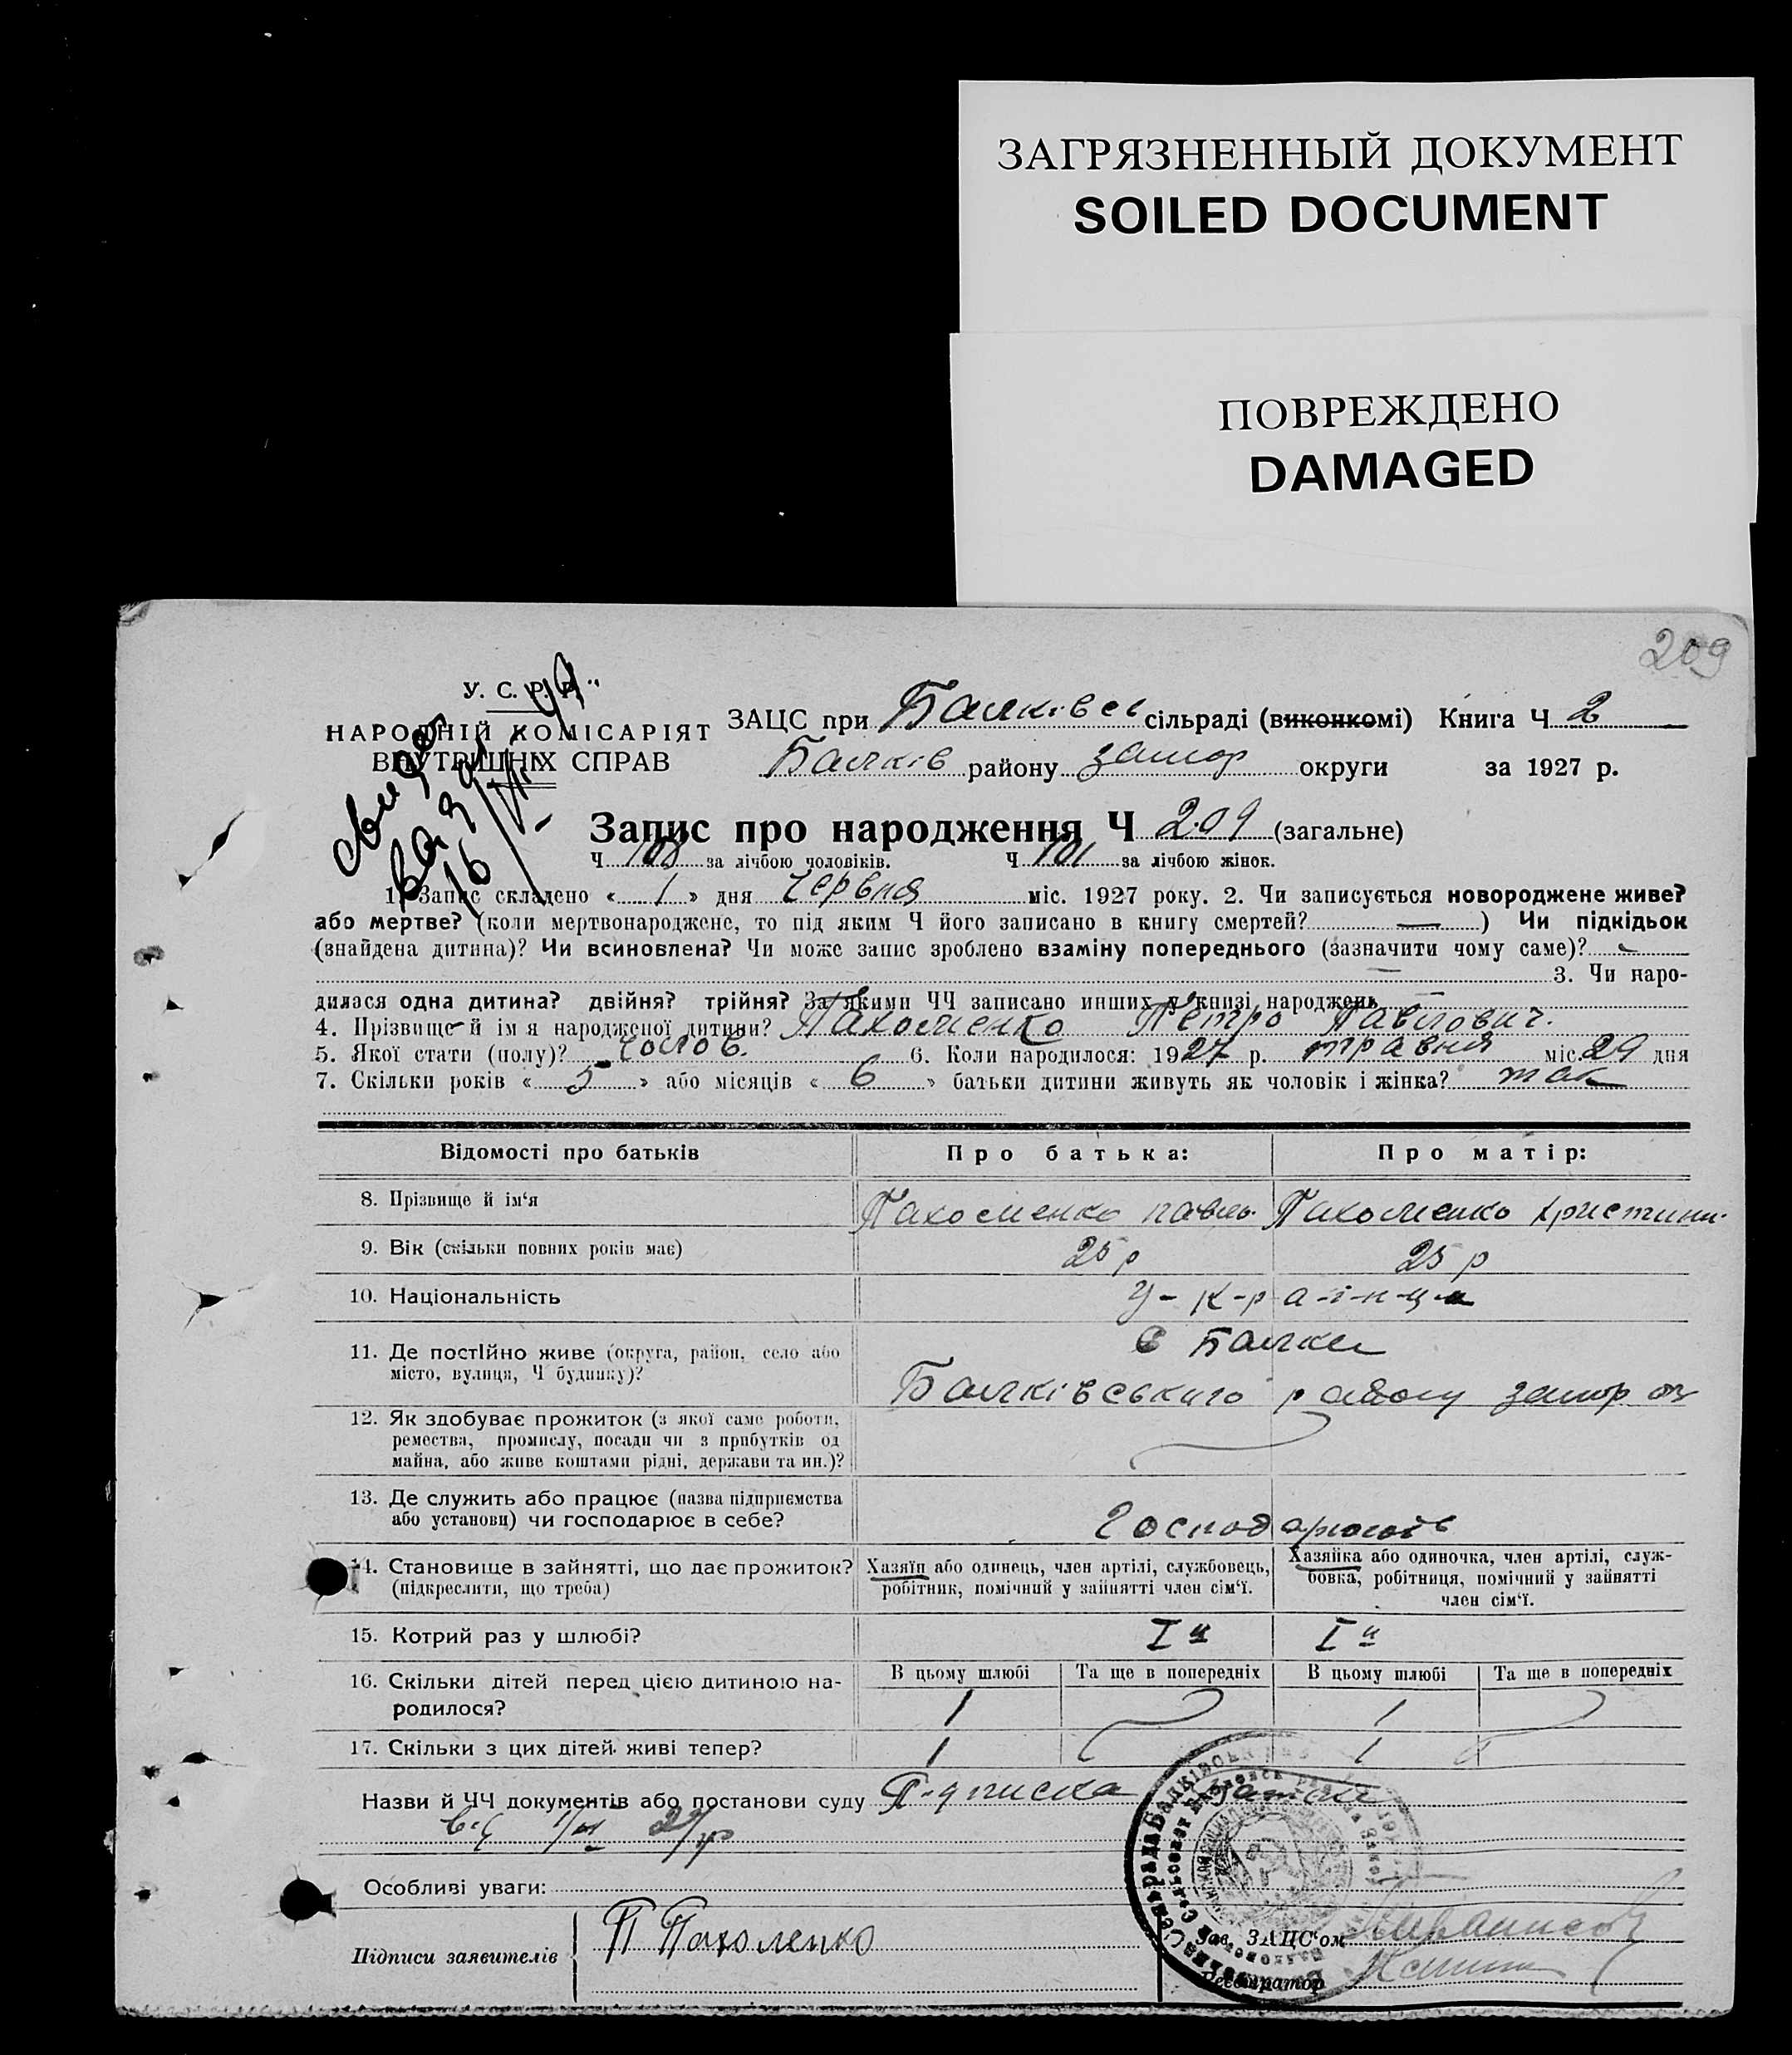 ЗАГРЯЗНЕННЫЙ ДОКУМЕНТ
SOILED DOCUMENT
ПОВРЕЖДЕНО
DAMAGED
209
У. С. Р. Р.
НАРОДНІЙ КОМІСАРІЯТ
ВНУТРІШНІХ СПРАВ
ЗАЦС при Балківсь сільраді (виконкомі) Книга Ч 2
Балків району запор округи за 1927 р.
Запис про народження Ч 209 (загальне)
Ч 108 за лічбою чоловіків. Ч 101 за лічбою жінок.
1. Запис складено « 1 » дня червня міс. 1927 року. 2. Чи записується новороджене живе?
або мертве? (коли мертвонароджене, то під яким Ч його записано в книгу смертей? — ) Чи підкідьок
(знайдена дитина)? Чи всиновлена? Чи може запис зроблено взаміну попереднього (зазначити чому саме)? —
— 3. Чи наро-
дилася одна дитина? двійня? трійня? За якими ЧЧ записано инших в книзі народжень —
4. Прізвище й ім'я народженої дитини? Пахоменко Петро Павлович.
5. Якої стати (полу)? чолов. 6. Коли народилося: 1927 р. травня міс. 29 дня
7. Скільки років « 5 » або місяців « 6 » батьки дитини живуть як чоловік і жінка? так
Відомості про батьків Про батька: Про матір:
8. Прізвище й ім'я Пахоменко павло. Пахоменко христини.
9. Вік (скільки повних років має) 25 р 25 р
10. Національність у-к-р-а-ї-н-ц-и
11. Де постійно живе (округа, район, село або місто, вулиця, Ч будинку)? с Балки
Балківського району запор ок
12. Як здобуває прожиток (з якої саме роботи,
ремества, промислу, посади чи з прибутків од
майна, або живе коштами рідні, держави та ин.)?
13. Де служить або працює (назва підприємства
або установи) чи господарює в себе? Господарюють
14. Становище в зайнятті, що дає прожиток? (підкреслити, що треба)
Хазяїн або одинець, член артілі, службовець,
робітник, помічний у зайнятті член сім'ї.
Хазяйка або одиночка, член артілі, служ-
бовка, робітниця, помічний у зайнятті
член сім'ї.
15. Котрий раз у шлюбі? I й I й
16. Скільки дітей перед цією дитиною на-
родилося?
В цьому шлюбі Та ще в попередніх В цьому шлюбі Та ще в попередніх
1 1
17. Скільки з цих дітей живі тепер? 1 1
Назви й ЧЧ документів або постанови суду Підписка
Особливі уваги:
Підписи заявителів П Пахоменко
Зав. ЗАЦС'ом
Реєстратор